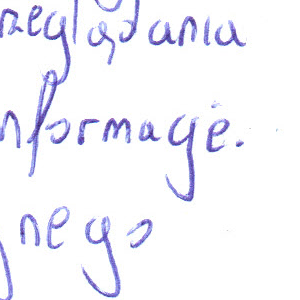 rzeglądania
nformacje.
nego